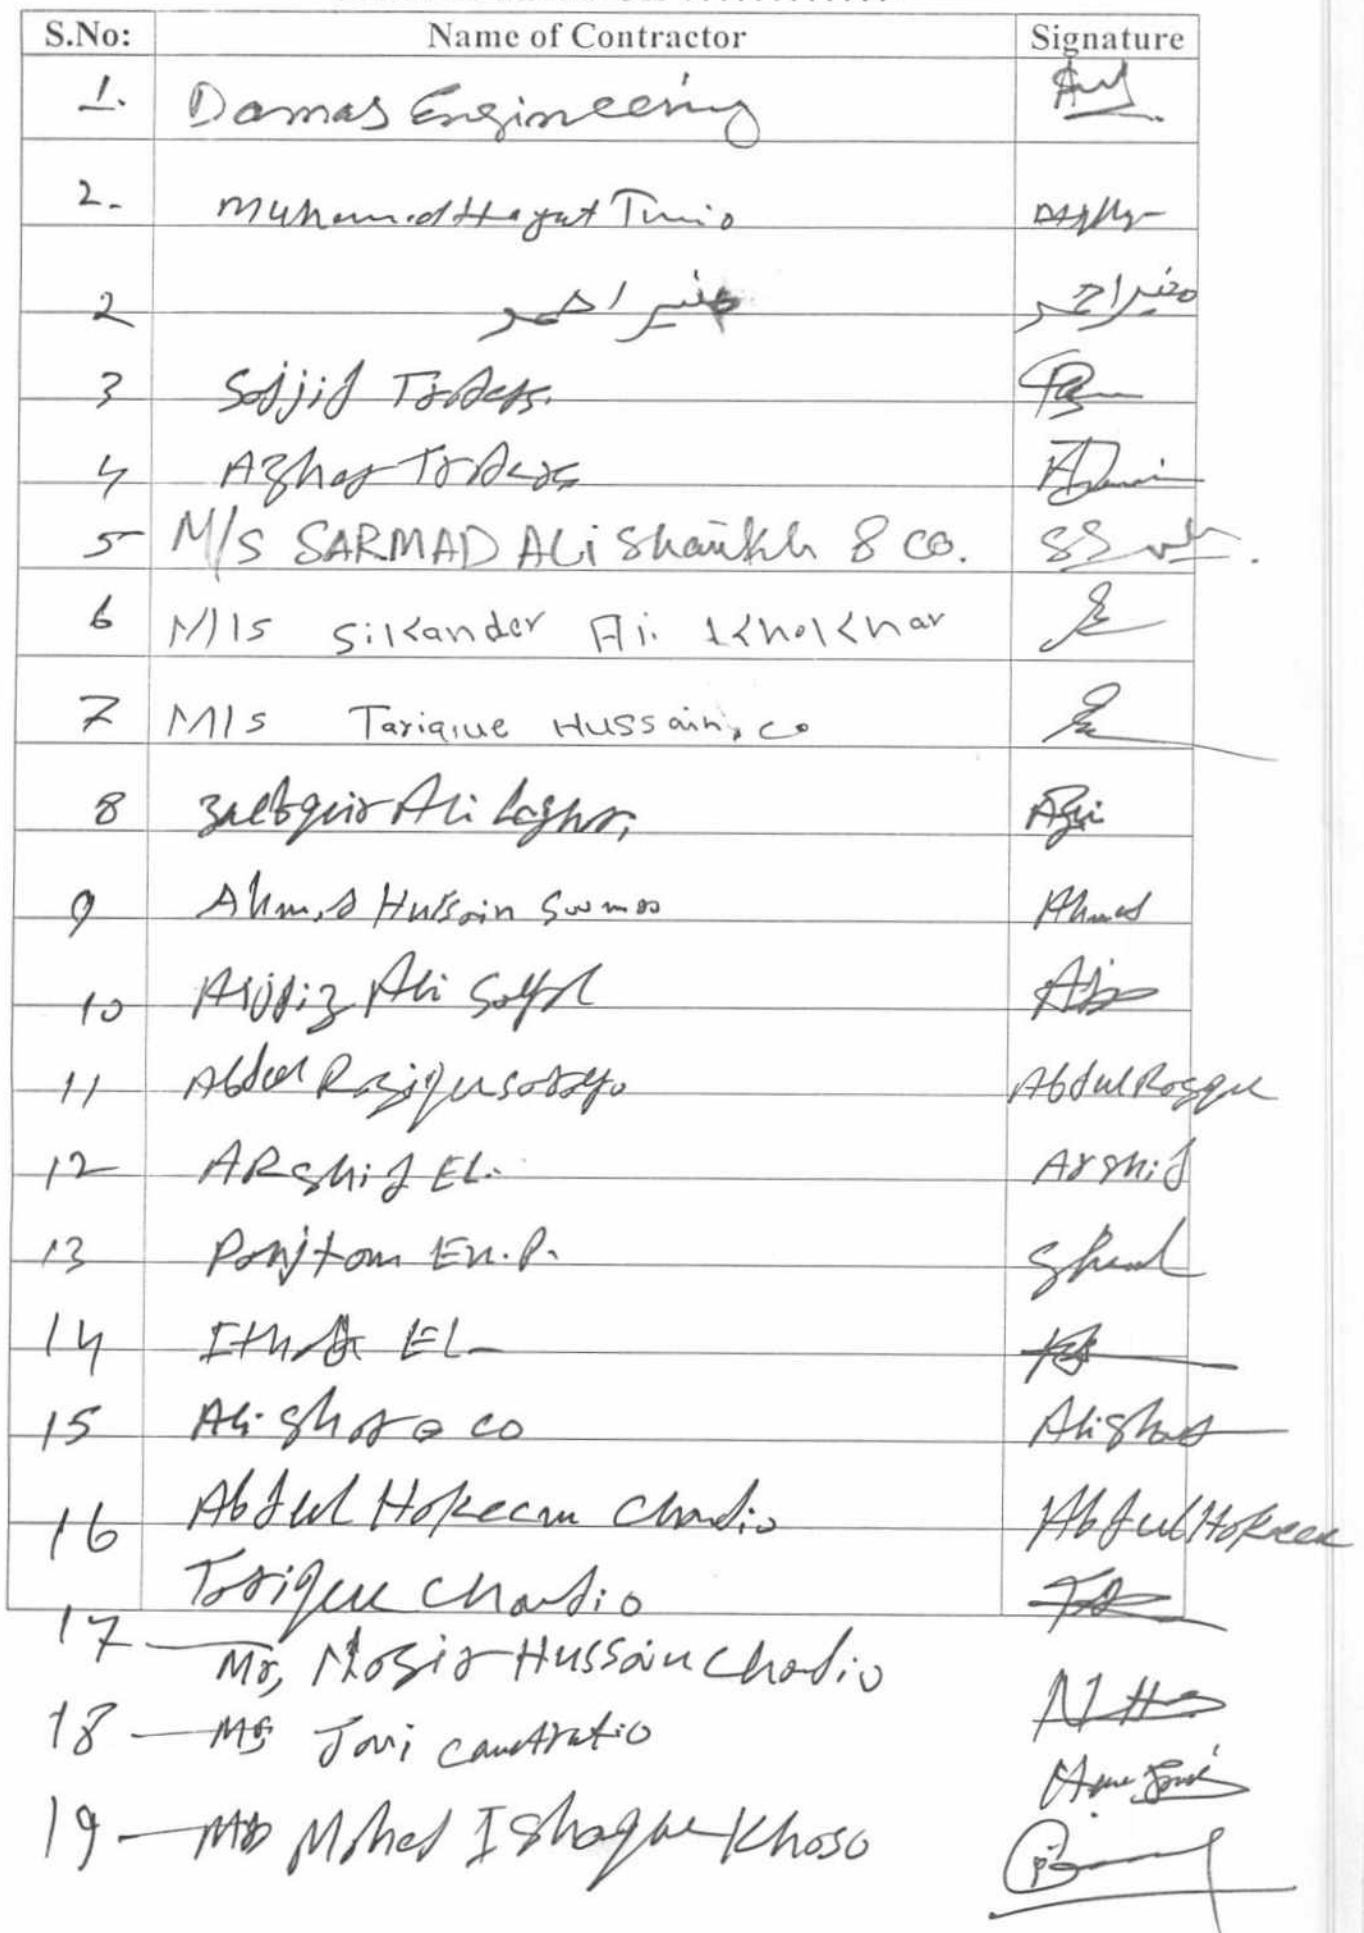 S.No: Name of Contractor Signature
1. Damas Engineering
2. Muhamad Hayat Tunio
2 منير احمد منير احمد
3 Sajjid Traders.
4 Azhar Traders
5 M/S SARMAD ALi Shaikh & CO.
6 M/s Sikander Ali Khokhar
7 M/s Tarique Hussain, Co
8 Ali
9 Ahmed Hussain Soomro Ahmed
10 Ali
11 Abdul Razique Abdul Razque
12 ARshid EL. Arshid
13 Panjtan En.P.
14 EL
15 Ali Sher & co Ali Sher
16 Abdul Hakeem Chandio Abdul Hakeem
Tarique Chandio
17 Mr, Nazir Hussain Chandio
18 Ms
19 Mohd Ishaque Khoso